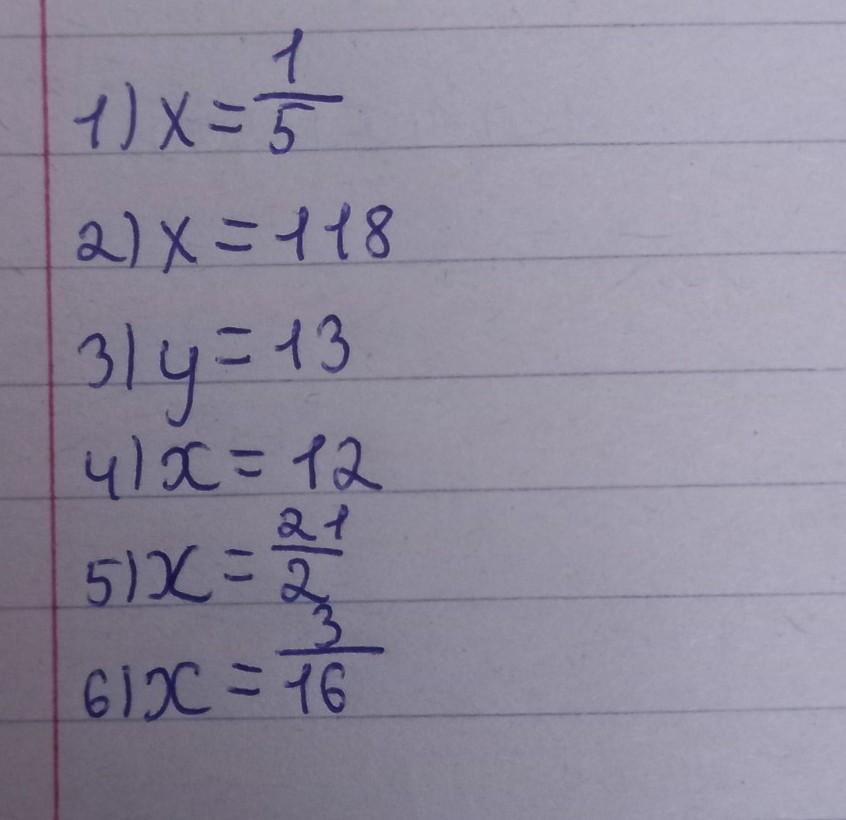 1) x = 1/5
2) x = 118
3) y = 13
4) x = 12
5) x = 21/2
6) x = 3/16